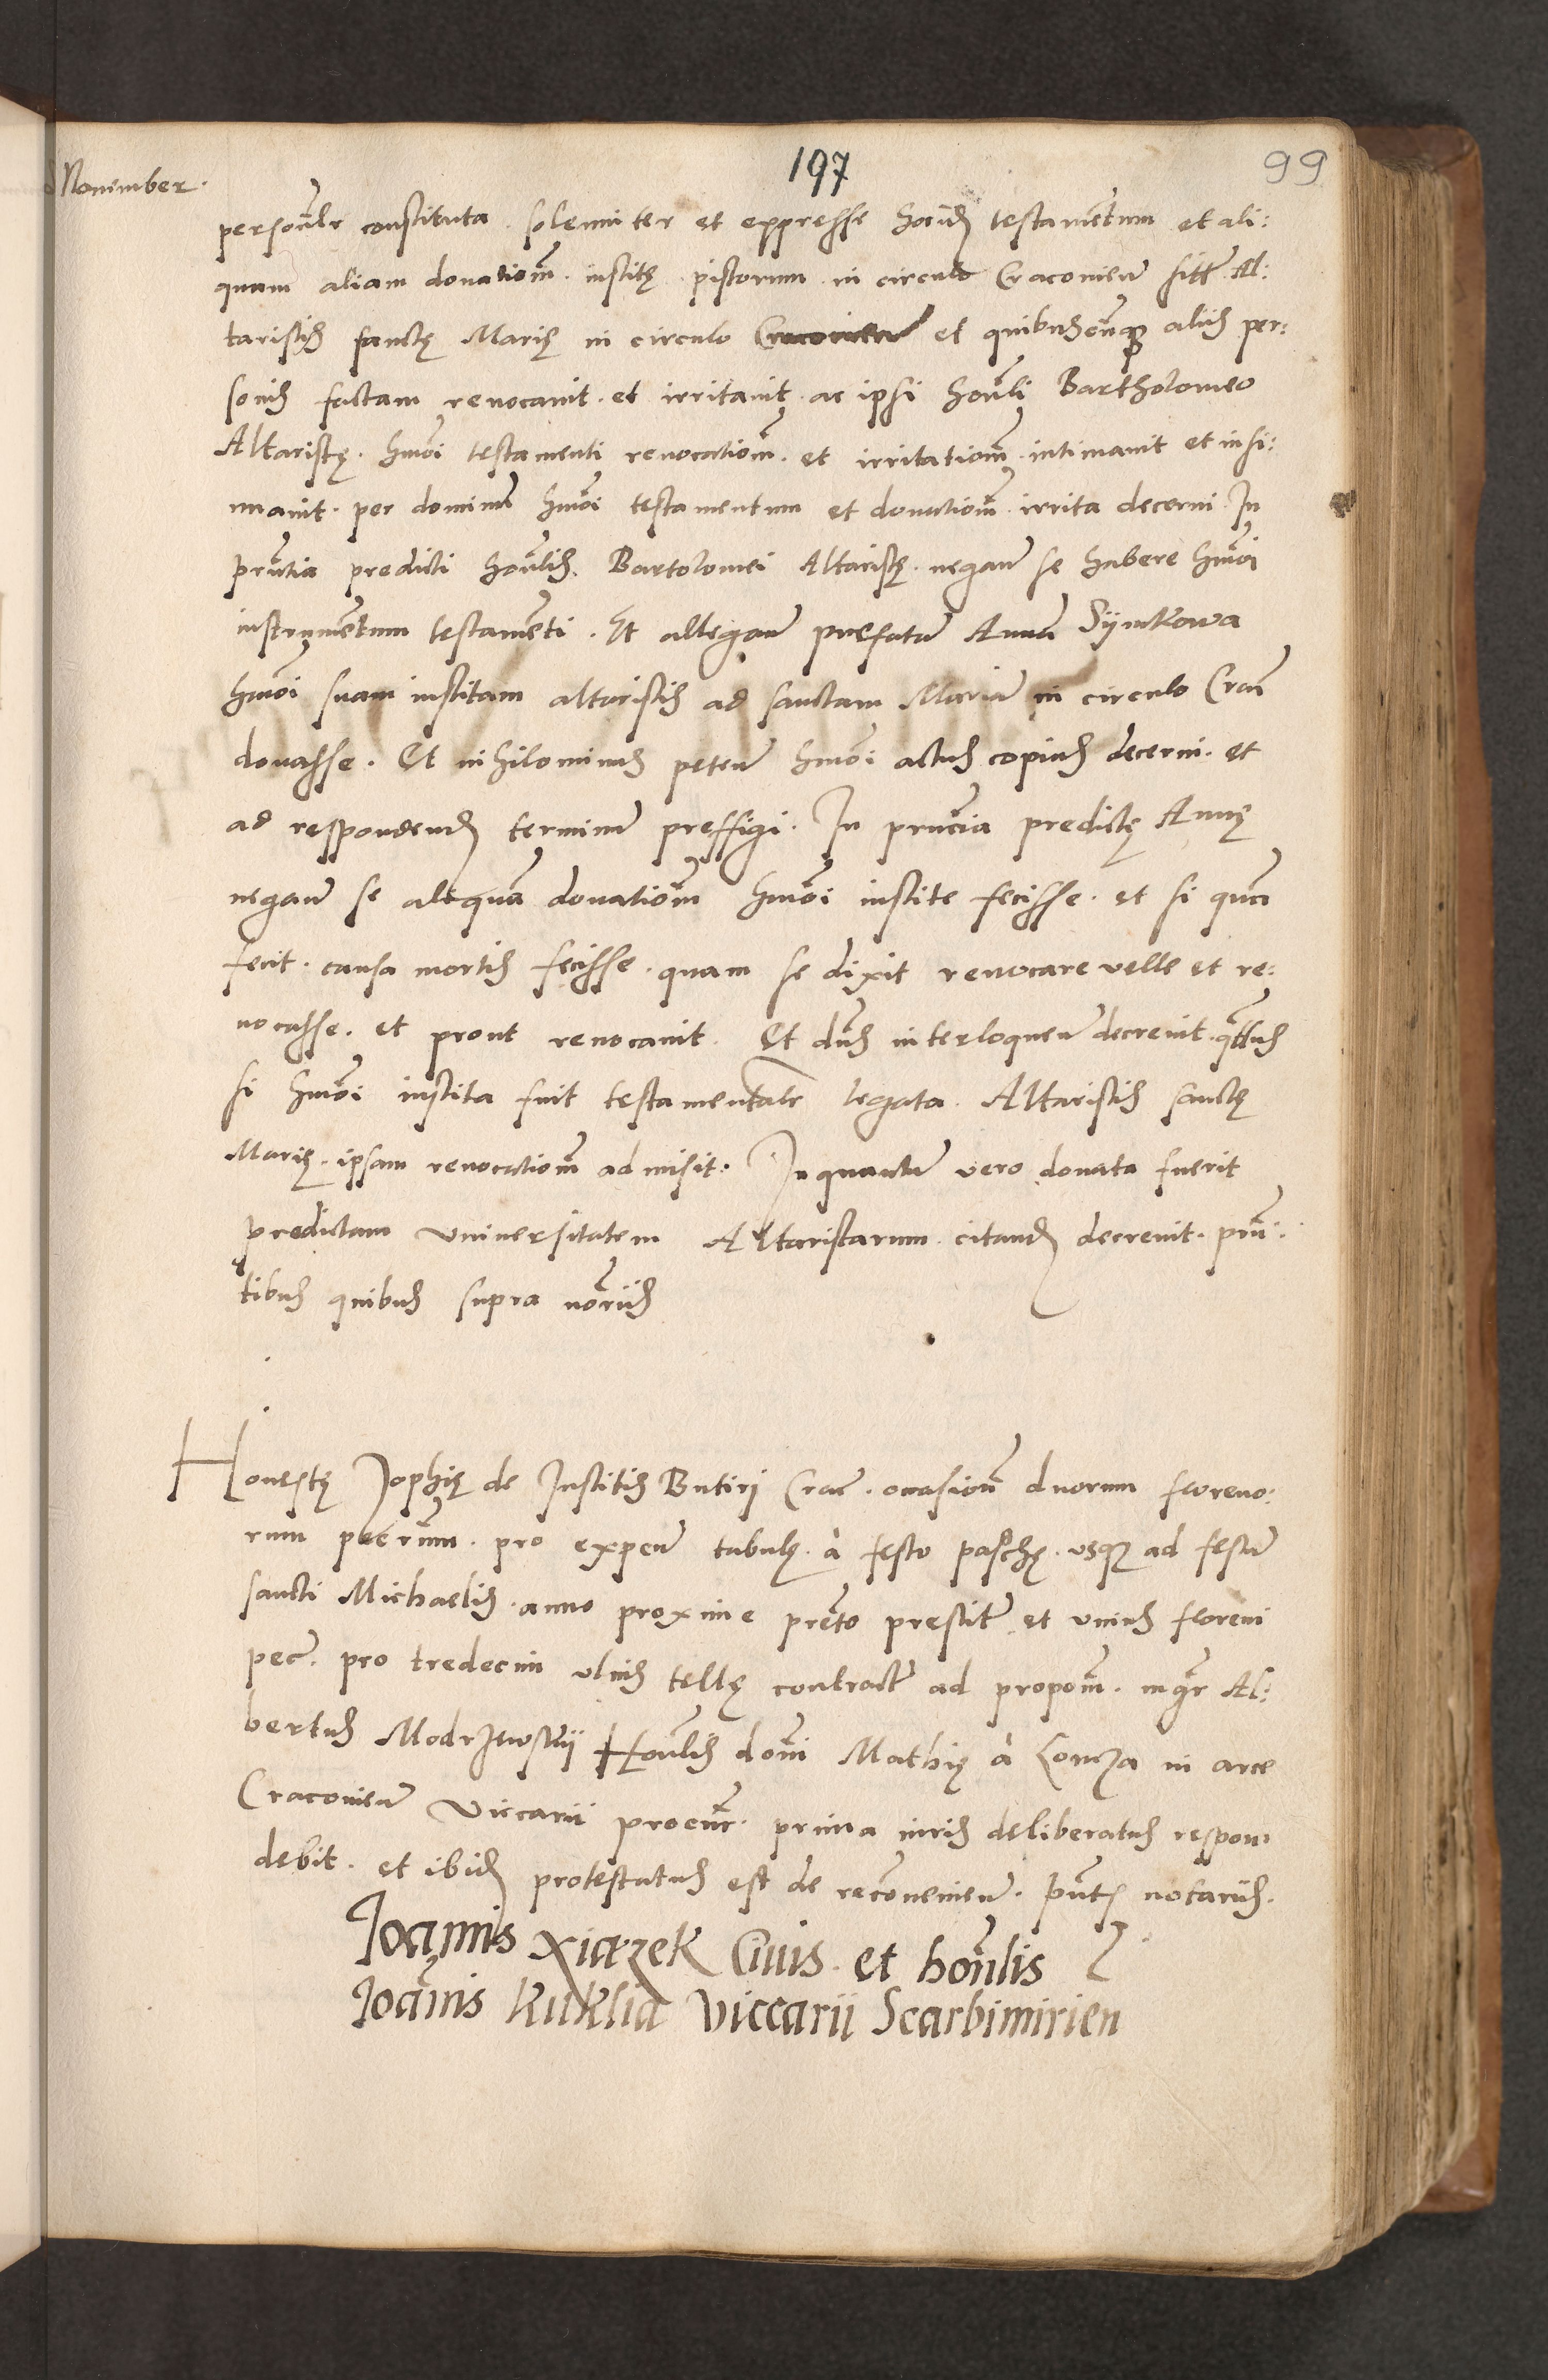 197
99
November.
personalr constituta. solenniter et expresse testamentum et ali:
quam aliam donationem. institę. pistorum. in circulo Cracovien sitę. Al:
taristis sanctę Marię in circulo Cracovien et quibuscunque aliis per:
sonis factam revocavit. et irritavit. ac ipsi honli Bartholomeo
Altaristę. hmoi testamenti revocationem. et irritationem. intimavit et insi:
nuavit. per dominum hmoi testamentum et donationem. irrita decerni. In
prntia predicti honlis. Bartolomei Altaristę. negan se habere hmoi
instrumentum testamenti. Et allegan prefatam Annam Sijmkowa
hmoi suam institam altaristis ad sanctam Mariam in circulo Crac
donasse. Et nihilominus peten hmoi actus copiam decerni. et
ad respondendum terminum preffigi. In prncia predictę Annę
negan se aliquam donationem hmoi institę fecisse. et si quam
fecit. causa mortis fecisse. quam se dixit revocare velle et re:
vocasse. et prout revocavit. Et dnus interloquen decrevit. qtenus
si hmoi instita fuit testamentalr legata. Altaristis sanctę
Marię. ipsam revocationem admisit. Inquantum vero donata fuerit
predictam Universitatem Altaristarum. citandam decrevit. prn:
tibus quibus supra notariis
Honestę Zophię de Institis Butiri Crac. occasione duorum floreno:
rum pecrum. pro expen tabulę. à festo paschę. usque ad festum
sancti Michaelis. anno proxime prento prestitę et unius floreni
pec. pro tredecim ulnis tellę contractę ad propom. mgr Al:
bertus Modrzewskij Honlis domi Mathię à Lomza in arce
Cracovien Viccarii procur. prima iuris deliberatus respon
debit. et ibidem protestatus est de reconvenien. pntibus notariis.
Joannis Xiązek Civis. et honlis
Joannis Kuklia Viccarii Scarbimirien